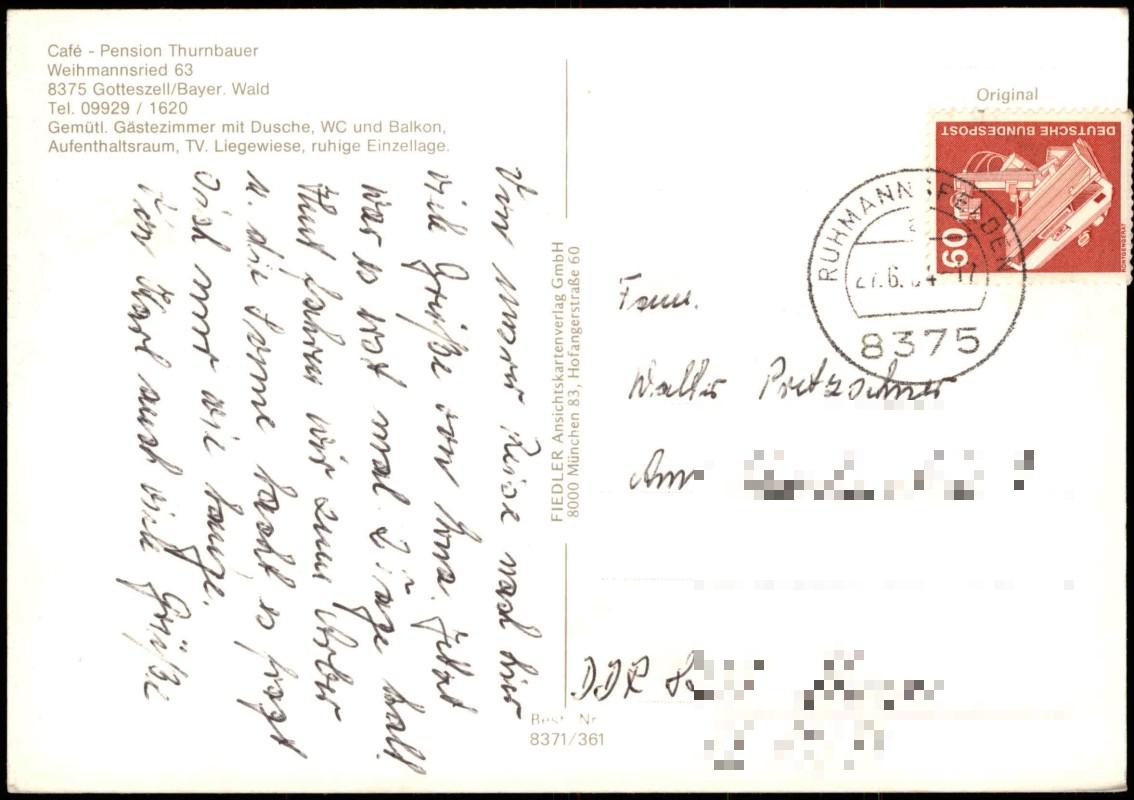 Café - Pension Thurnbauer
Weihmannsried 63
8375 Gotteszell/Bayer. Wald
Tel. 09929 / 1620
Gemütl. Gästezimmer mit Dusche, WC und Balkon,
Aufenthaltsraum, TV. Liegewiese, ruhige Einzellage.
Von unserer Reise nach hier
viele Grüße von
war es erst mal 2 Tage kalt
Heut fahren wir zum Arber
u. die Sonne lacht es fragt
sich nur wie lange.
auch viele Grüße
FIEDLER Ansichtskartenverlag GmbH
8000 München 83, Hofangerstraße 60
Best. Nr.
8371/361
Original
DEUTSCHE BUNDESPOST
60
RÖNTGENGERÄT
RUHMANNSFELDEN
8375
Fam.
Walter Pretzschner
Am
DDR